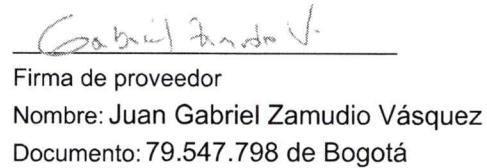 Gabriel Zamudio V.
Firma de proveedor
Nombre: Juan Gabriel Zamudio Vásquez
Documento: 79.547.798 de Bogotá